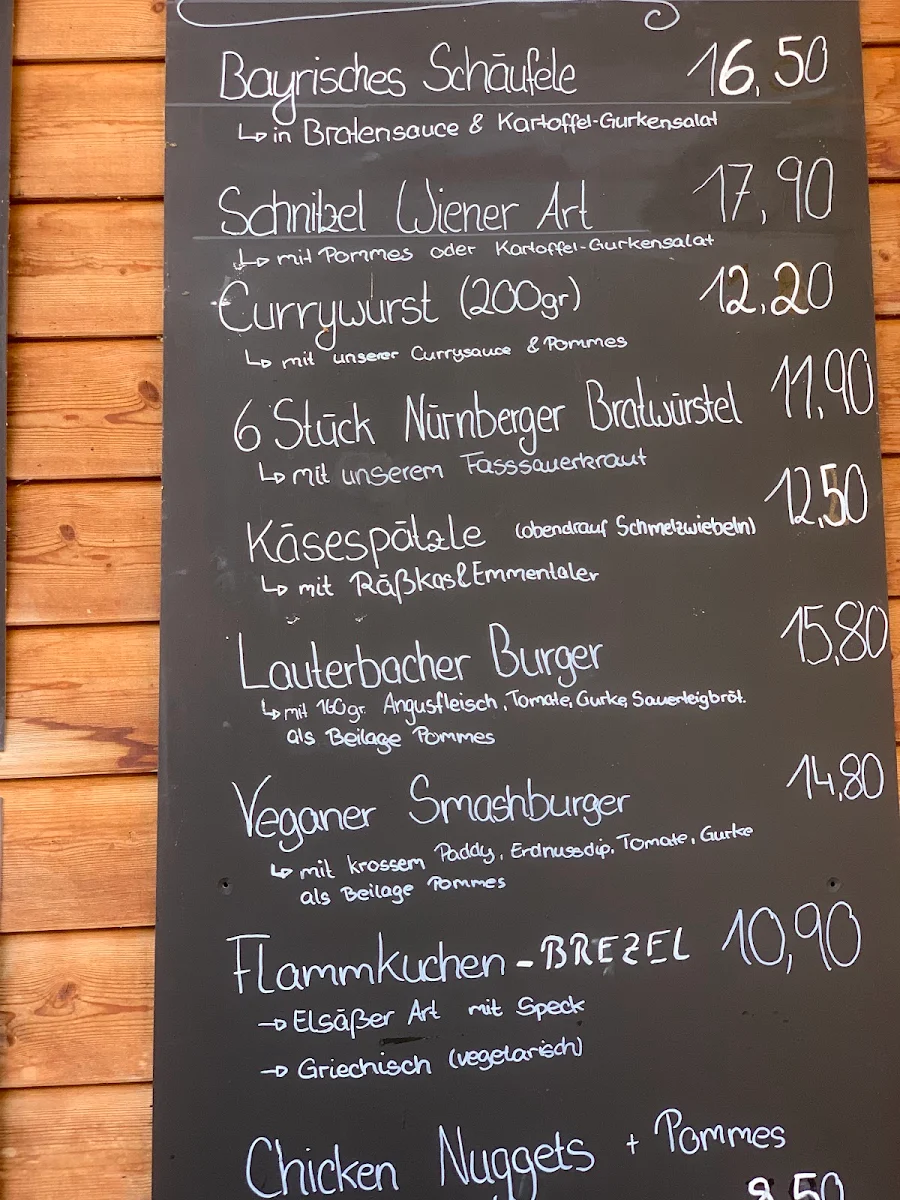 Bayrisches Schäufele 16,50
↳ in Bratensauce & Kartoffel-Gurkensalat
Schnitzel Wiener Art 17,90
↳ mit Pommes oder Kartoffel-Gurkensalat
Currywurst (200gr) 12,20
↳ mit unserer Currysauce & Pommes
6 Stück Nürnberger Bratwürstel 11,90
↳ mit unserem Fasssauerkraut
Käsespätzle (obendrauf Schmelzwiebeln) 12,50
↳ mit Räßkas & Emmentaler
Lauterbacher Burger 15,80
↳ mit 160gr. Angusfleisch, Tomate, Gurke, Sauerteigbröt.
als Beilage Pommes
Veganer Smashburger 14,80
↳ mit krossem Paddy, Erdnussdip, Tomate, Gurke
als Beilage Pommes
Flammkuchen - BREZEL 10,90
→ Elsäßer Art mit Speck
→ Griechisch (vegetarisch)
Chicken Nuggets + Pommes
8,50